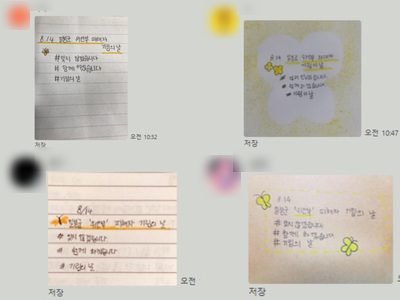 8/14 일본군 위안부 피해자
기림의 날
#잊지 않겠습니다
#함께 하겠습니다
#기림의날
오전 10:52
저장
8/14 일본군 위안부 피해자
기림의날
#잊지 않겠습니다
#함께 하겠습니다
#기림의날
오전 10:47
저장
8/14
일본군 '위안부' 피해자 기림의 날
# 잊지 않겠습니다
# 함께 하겠습니다
# 기림의 날
오전
저장
8.14
일본군 '위안부' 피해자 기림의 날
#잊지 않겠습니다
#함께 하겠습니다
#기림의 날
오
저장